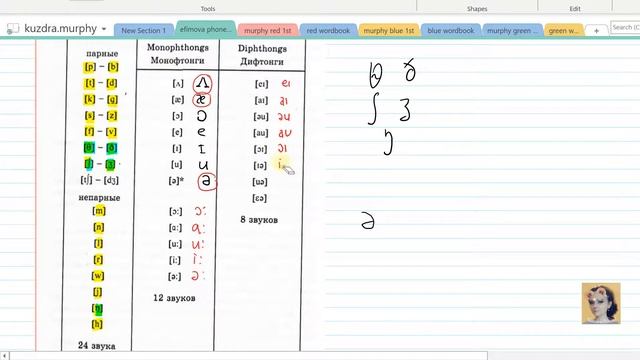 Tools
Shapes
Edit
kuzdra.murphy
New Section 1
efimova phone...
murphy red 1st
red wordbook
murphy blue 1st
blue wordbook
murphy green ...
green w...
+
Search (C
парные
[p] – [b]
[t] – [d]
[k] – [g]
[s] – [z]
[f] – [v]
[θ] – [ð]
[ʃ] – [ʒ]
[tʃ] – [dʒ]
непарные
[m]
[n]
[l]
[r]
[w]
[j]
[ŋ]
[h]
24 звука
Monophthongs
Монофтонги
[ʌ] Λ
[æ] æ
[ɔ] ɔ
[e] e
[ɪ] I
[u] u
[ə]* ə
[ɔ:] ɔ:
[ɑ:] ɑ:
[u:] u:
[i:] i:
[ə:] ə:
12 звуков
Diphthongs
Дифтонги
[eɪ] eɪ
[aɪ] aɪ
[əu] əu
[au] au
[ɔɪ] ɔɪ
[ɪə] i
[uə]
[ɛə]
8 звуков
θ ð
ʃ ʒ
ŋ
ə